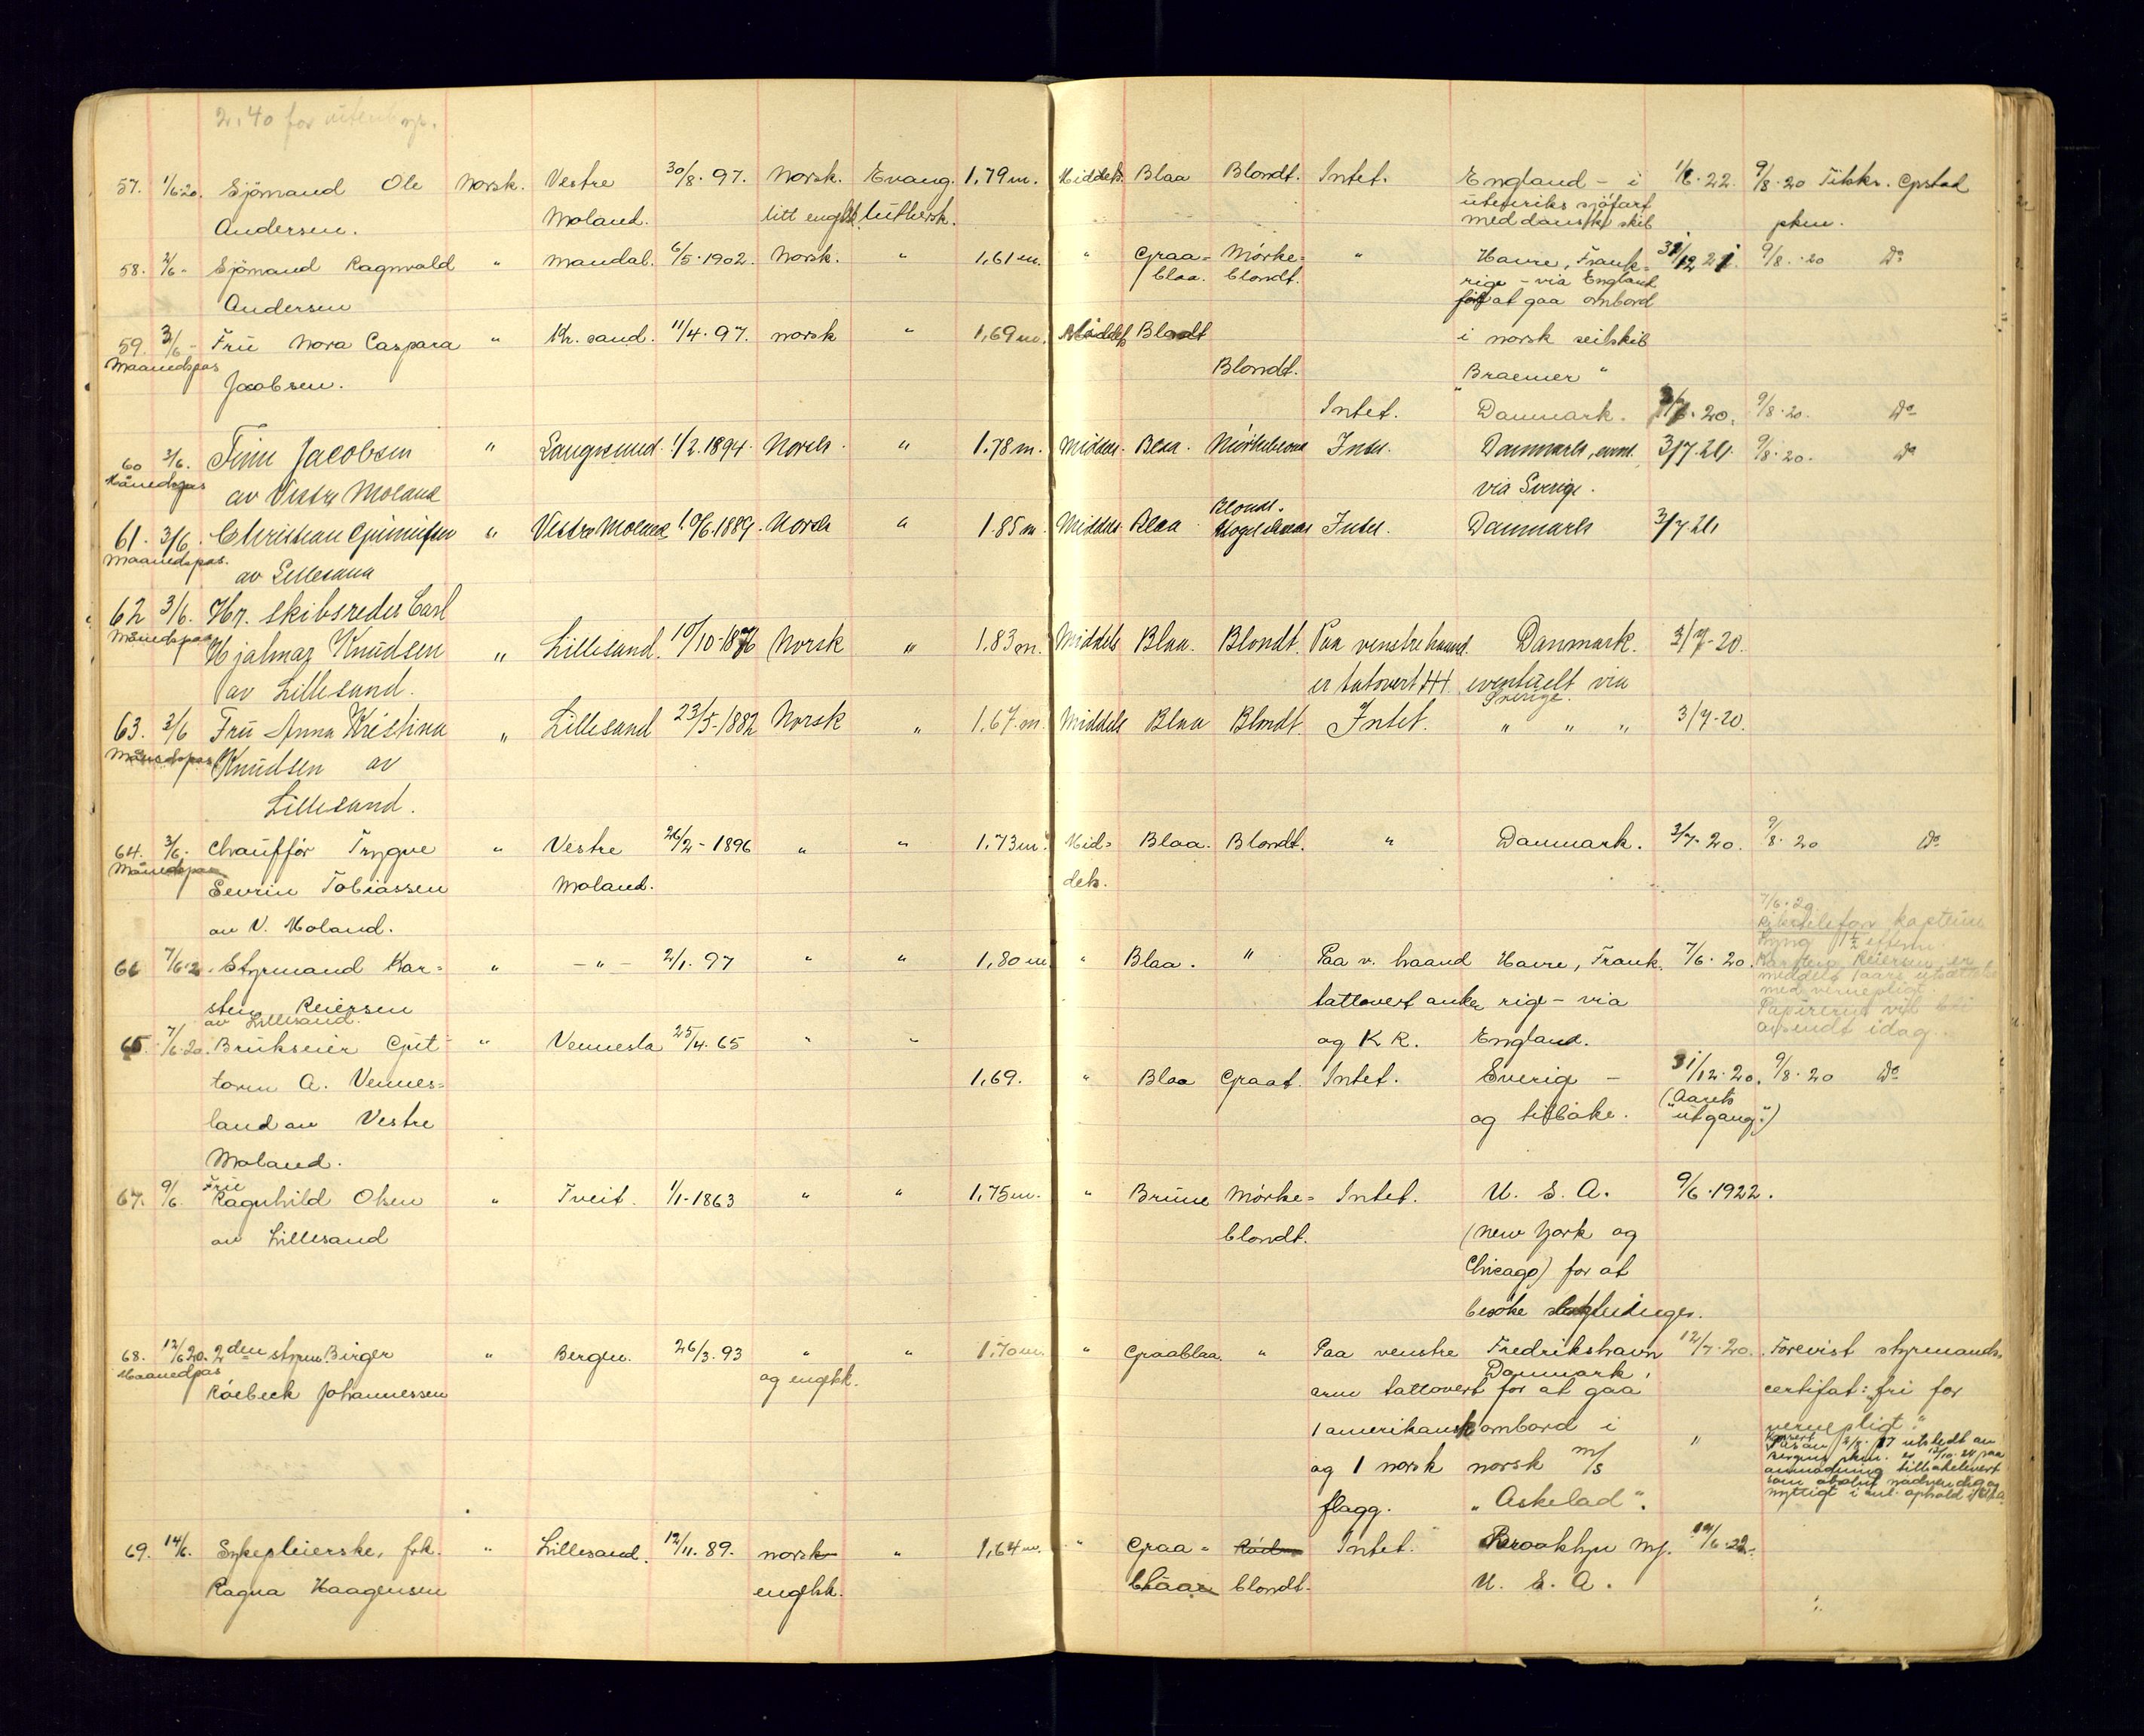 2.40 for
57. 1/6.20. Sjömand Ole Norsk. Vestre 30/8.97. Norsk. Evang. 1,79 m. Middels. Blaa Blondt. Intet. England - i 1/6.22. 9/8.20 Tilkr. Gpstad
Andersen. Moland. litt englsk. luthersk. utenriks sjöfart
med danske skib pkm.
58. 2/6 - Sjömand Ragnvald " Mandal. 6/5.1902. Norsk. " 1,61 m. " Graa= Mörke= " Havre, Frank= 31/12 21. 9/8.20 Do
Andersen blaa. blondt. rige - via England
for at gaa ombord
59. 3/6 - Frü Nora Caspara " Kr.sand. 11/4.97. norsk " 1,69 m. Middels Blaa i norsk seilskib
Maanedspas Jacobsen. Blondt. "Braemer"
Intet. Danmark. 3/7.20. 9/8.20. Do
60 3/6. Finn Jacobsen " Langesund. 1/2.1894. Norsk. " 1.78 m. Middels. Blaa. Mörkeblond Intet. Danmark, event. 3/7.20. 9/8.20. Do
Månedspas av Vestre Moland via Sverige.
61. 3/6. Christian " Vestre Moland 10/6.1889. Norsk " 1.85 m. Middels. Blaa. Blondt. Intet. Danmark 3/7 20
Maanedspas. av Lillesand
62 3/6. Hr. skibsreder Carl
Månedspas Hjalmar Knüdsen " Lillesand. 10/10-1876 Norsk " 1.83 m. Middels Blaa. Blondt. Paa venstre haand Danmark. 3/7-20.
av Lillesand. er tatovert eventüelt via
Sverige.
63. 3/6 Frü Anna Kristina " Lillesand 23/5-1882 Norsk " 1.67 m. Middels Blaa Blondt. Intet. " " " 3/7-20.
Månedspas Knüdsen av
Lillesand.
64. 3/6. Chaufför Trygve " Vestre 26/2-1896 " " 1,73 m. Mid= Blaa. Blondt. " Danmark. 3/7.20. 9/8.20 Do
Månedspas Sevrin Tobiassen Moland. dels.
av V. Moland.
7/6.20
kaptein
66 7/6.2. Styrmand Kar= " -"- 2/1.97 " " 1,80 m. " Blaa. " Paa v. haand Havre, Frank. 7/6.20. Karsten Reiersen er
sten Reiersen tattovert anker rige - via
av Lillesand. med vernepligt.
og K R. England. Papirerne vil bli
avsendt idag.
65. 7/6.20. Brükseier Güt= " Vennesla 25/4.65 " "
torm A. Vennes= 1,69. " Blaa Graat. Intet. Sverige - 31/12.20. 9/8.20 Do
land av Vestre og tilbake. (Aarets utgang.)
Moland.
67. 9/6. Frü Ragnhild Olsen " Tveit. 1/1-1863 " " 1,75 m. " Brüne Mörke= Intet. U. S. A. 9/6.1922.
av Lillesand blondt. (New York og
Chicago) for at
besöke slegtninger.
68. 12/6 20. 2den styrm. Birger " Bergen. 26/3.93 " " 1.70 m. " Graablaa. " Paa venstre Fredrikshavn 12/7.20. Forevist styrmands=
Maanedpas Röebeck Johannessen og englsk. arm tattovert Danmark, for at gaa certifat: "fri for
1 amerikansk ombord i vernepligt."
og 1 norsk norsk m/s "
flagg. "Askelad".
69. 14/6. Sykepleierske, frk. " Lillesand. 12/11.89. norsk " 1,64 m. " Graa= Intet. Brooklyn Ny. 14/6.22.
Ragna Haagensen englsk. blaae blondt. U. S. A.